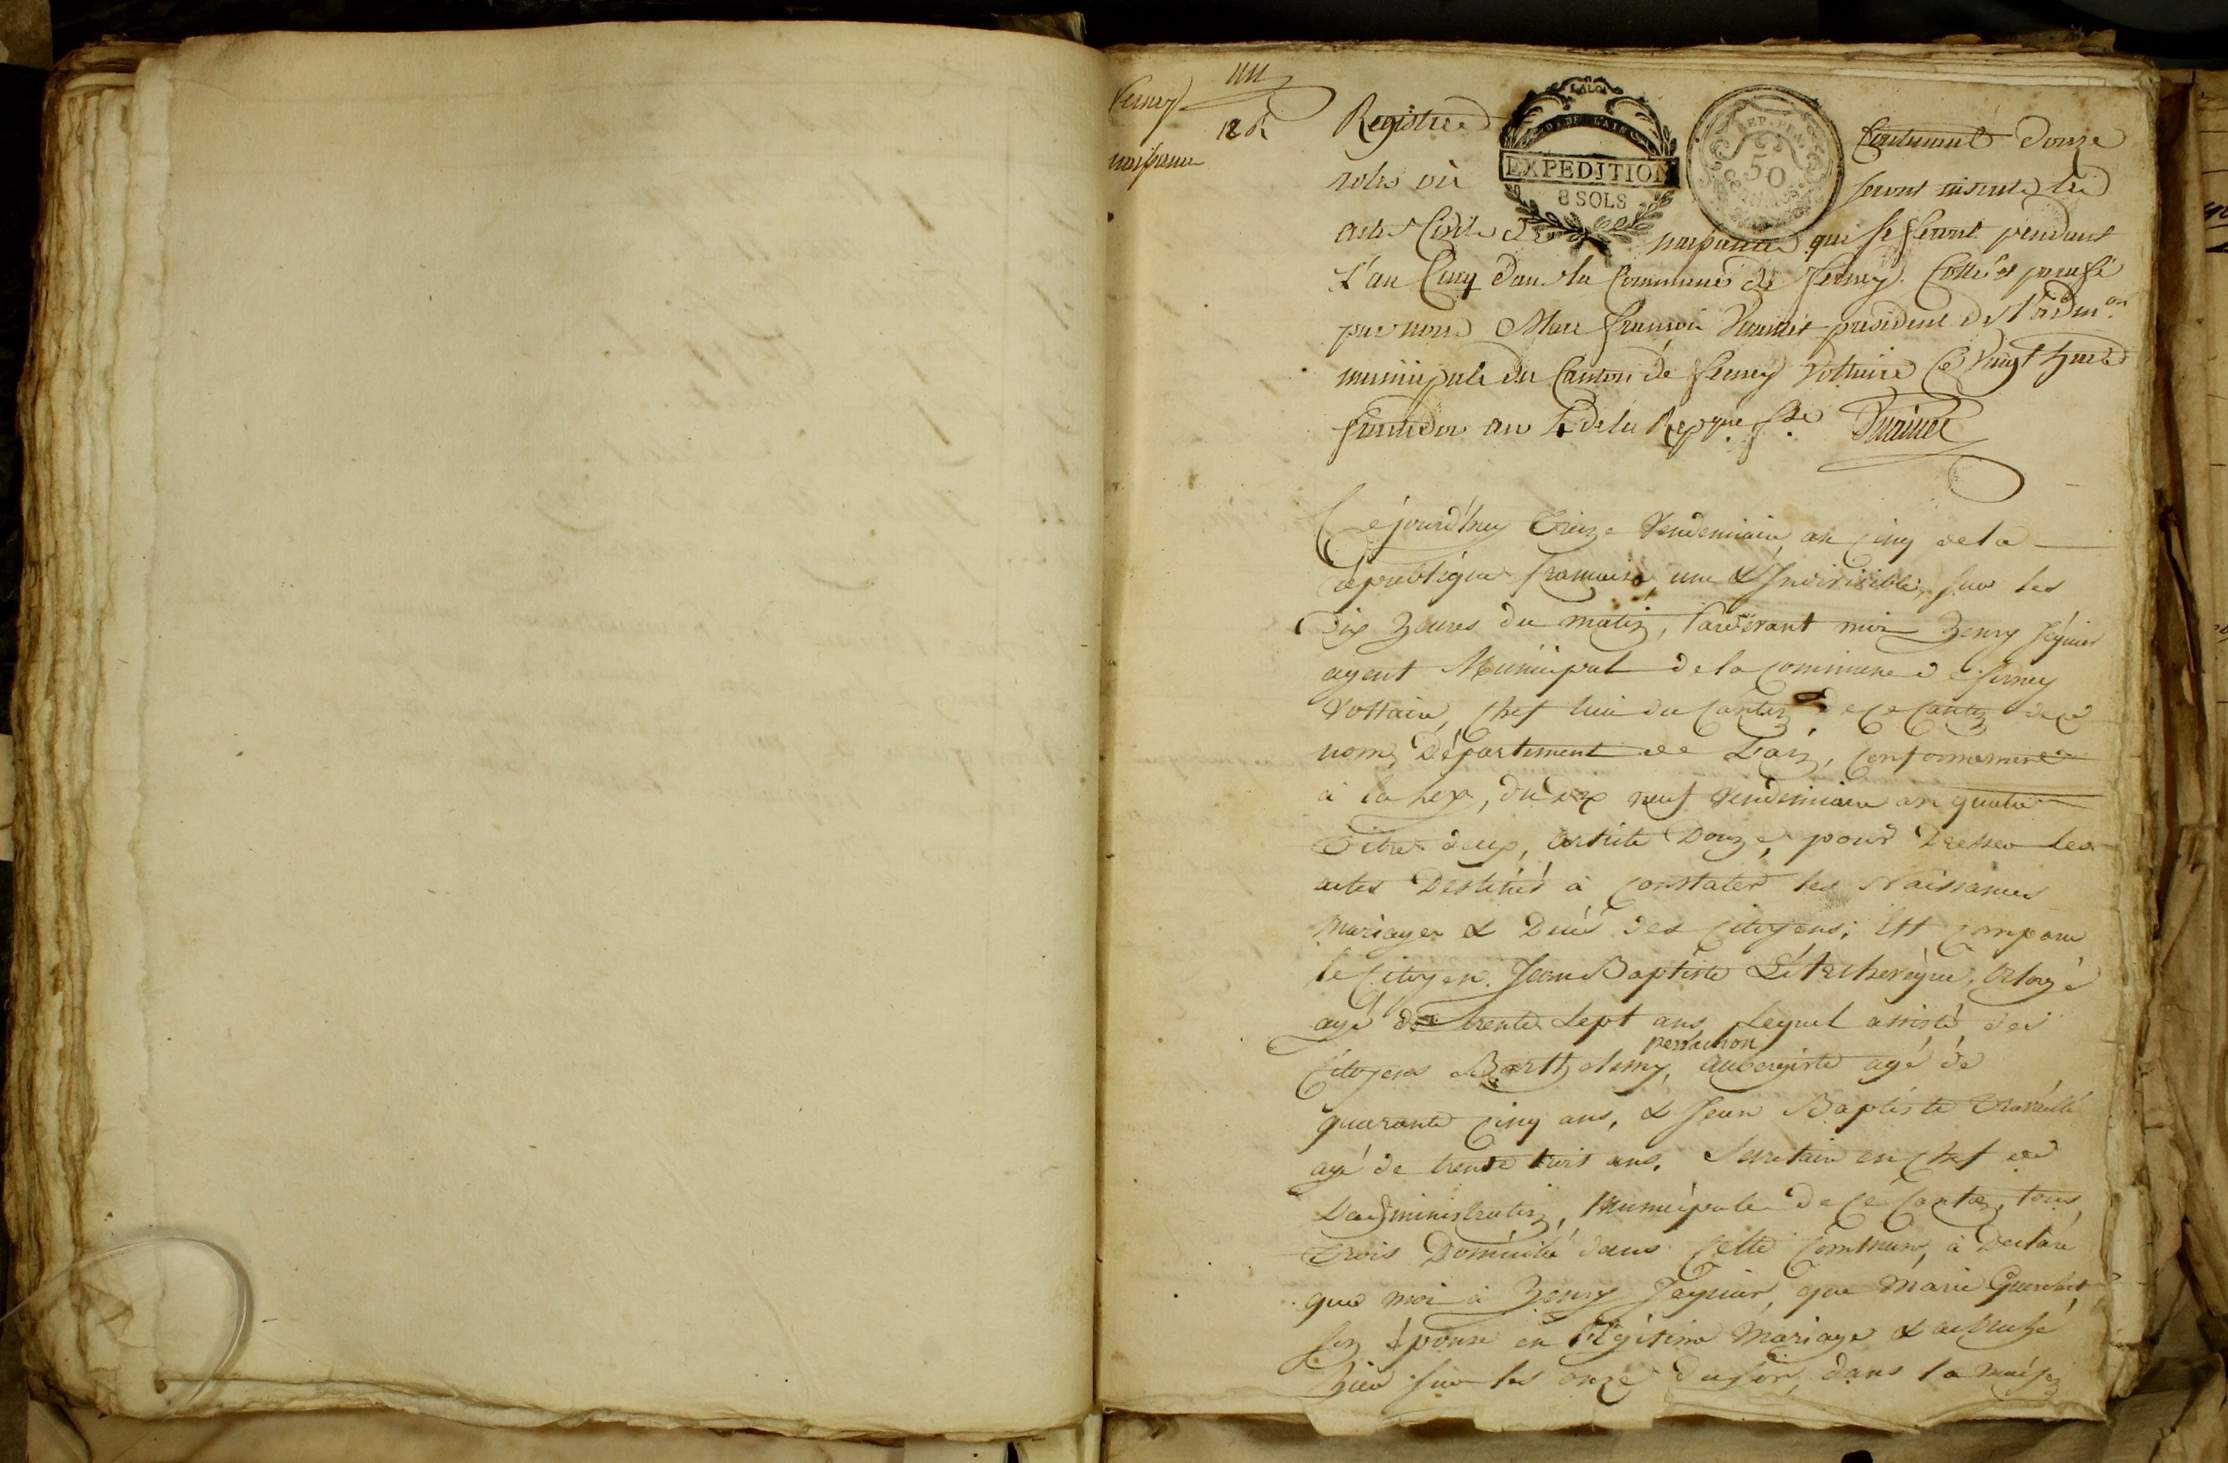 Ferney
naissance
Registre Contenant Douze
LA LOI
DEP. DE L'AIN
EXPEDITION
8 SOLS
REP. FRA.
50
CENTIMES
roles où seront inscrits les
actes Civils de naissance qui se feront pendant
L'an Cinq dans la Commune de Ferney. Cotté et paraffé
par nous Marc françois president de l'adm.on
municipale du Canton de Ferney Voltaire Ce Vingt huit
fructidor an 4 de la Repque fse
Cejourd'huy Treize Vendemiaire, an Cinq de la
république francaise une & Indivisible, sur les
Dix heures du matin, Pardevant moi Henry Jéquier
agent Municipal de la Commune de ferney
Voltaire, Chef lieu du Canton de Ce Canton de Ce
nom, Département de L'ain, Conformement
à la Loix, du dix neuf Vendemiaire an quatre
Titre deux, article Douze, pour Dresser les
actes Destinés à Constater les Naissances
Mariages & Décés des Citoyens; Est Comparu
le Citoyen Jean Baptiste
agé de trente Sept ans, Lequel assisté, des
perrachon
Citoyens Barthelemy, Aubergiste agé de
quarante Cinq ans, & Jean Baptiste
agé de trente huit ans, Secretaire en Chef de
L'administration, Municipale de Ce Canton, tous
Trois Domicilié dans Cette Commune, à Declaré
que moi à Henry Jéquier, que Marie
son épouse en légitime Mariage & accouché
hier sur les onze du soir, dans la maison